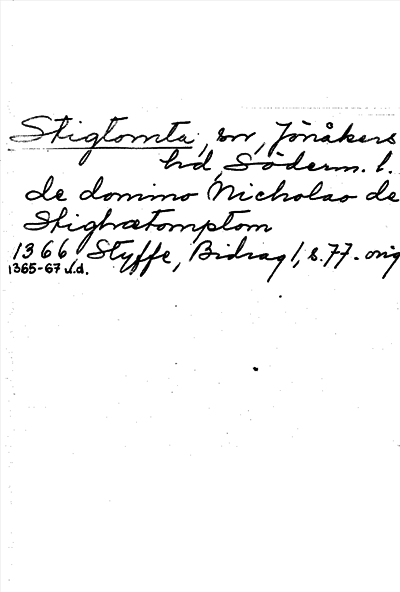 Stigtomta, sn, Jönåkers
hd, Söderm. l.
de domino Nicholao de
Stighratomptom
1366 Styffe, Bidrag 1, s. 77. orig
1365-67 u.d.